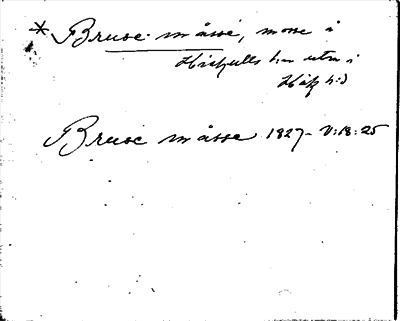 * Bruse måsse, mosse i
Hiskulls h:n utm i
Häk h:d
Bruse måsse 1827 – V:18:25